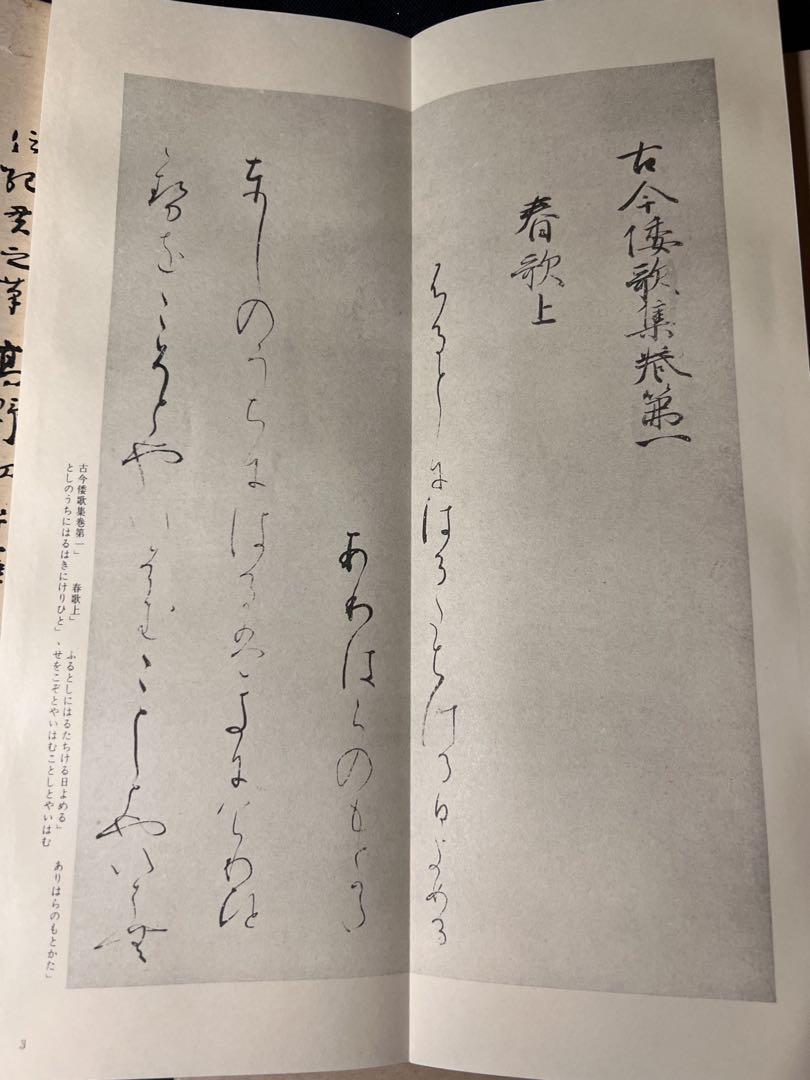 古今倭歌集巻第一
春歌上
ふるとしにはるたちける日よめる
ありはらのもとかた
としのうちにはるはきにけりひと
ゝせをこそとやいはむことしとやいはむ
古今倭歌集巻第一」 春歌上」 ふるとしにはるたちける日よめる」 ありはらのもとかた」
としのうちにはるはきにけりひと」ゝせをこぞとやいはむことしとやいはむ
伝紀貫之筆 高野切
3